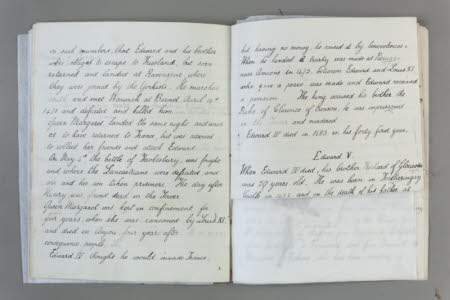 in such numbers, that Edward and his brother
were obliged to escape to Friesland, but soon
returned and landed at Ravenspur where
they were joined by the Yorkists. He marched
south and met Warwick at Barnet April 14th
1471 and defeated and killed him
Queen Margaret landed the same night and was
as to have returned to France, but was advised
to collect her friends and attack Edward
On May 4th the battle of Tewkesbury, was fought
and where the Lancastrians were defeated and
and his son taken prisoners. The day after
Henry was found dead in the Tower
Queen Margaret was kept in confinement for
five years when she was ransomed by Louis XI.
and died in Anjou four years after
consequence people
Edward IV thought he would invade France,
but having no money, he raised it by benevolences.
When he landed a treaty was made at
near Amiens in 1475 between Edward and Louis XI
who give a peace was made and Edward received
a pension. The king accused his brother the
Duke of Clarence of treason, he was imprisoned
in the Tower and murdered
Edward IV died in 1483 in his forty first year.
Edward V.
When Edward IV died, his brother Richard of Gloucester
was 30 years old. He was born in Fotheringay
castle in 1452 and on the death of his father at